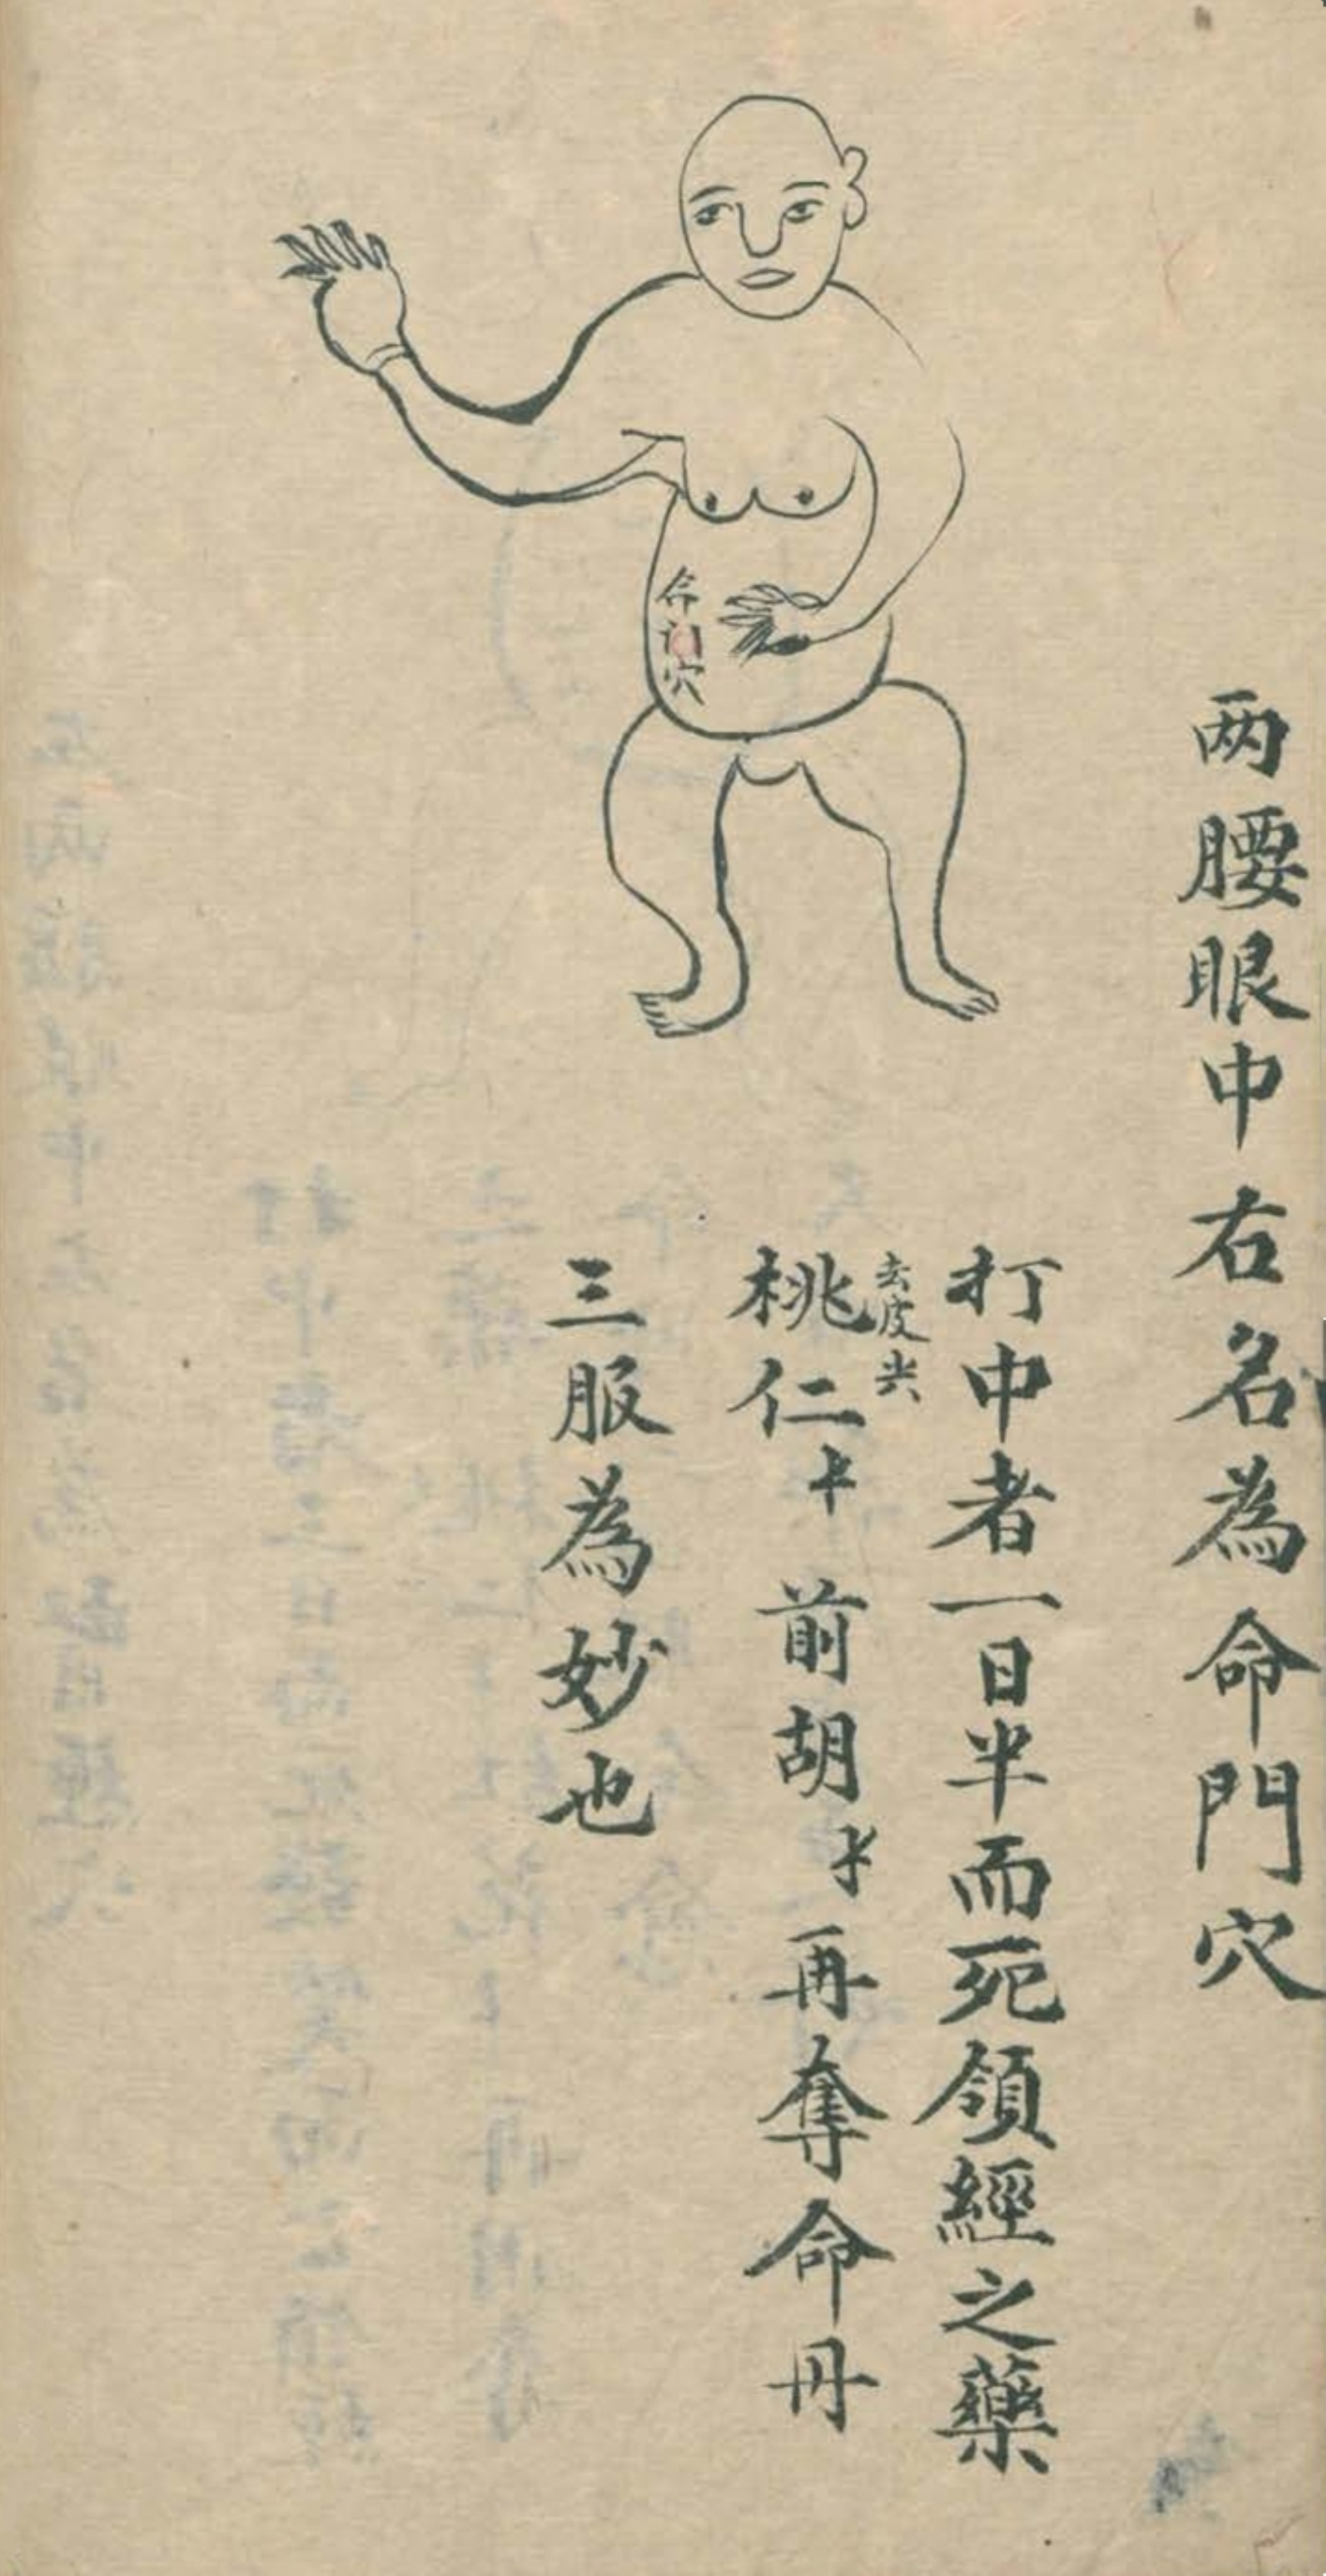 两腰眼中右名為命門穴
打中者一日半而死領經之藥
桃仁 去皮尖 前胡 再奪命丹
三服為妙也
命門穴